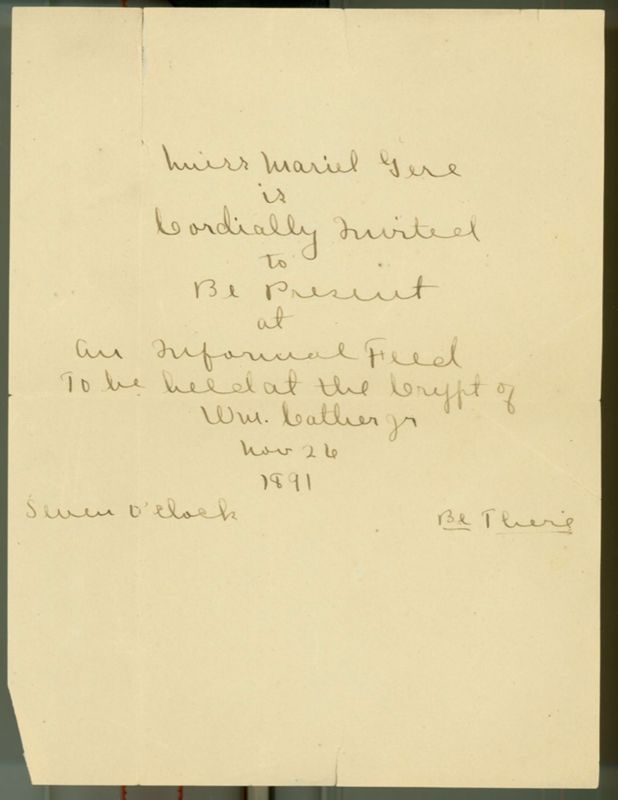 Miss Mariel Gere
is
Cordially Invited
to
Be Present
at
An Informal Feed
To be held at the Crypt of
Wm. Cather jr
Nov 26
1891
Seven O'clock
Be There